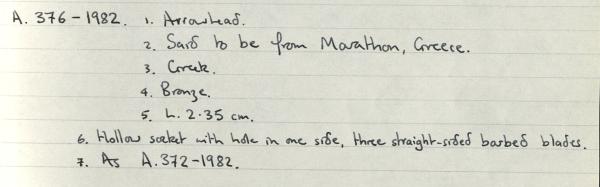 A. 376-1982. 1. Arrowhead.
2. Said to be from Marathon, Greece.
3. Greek.
4. Bronze.
5. L. 2.35 cm.
6. Hollow socket with hole in one side, three straight-sided barbed blades.
7. As A.372-1982.